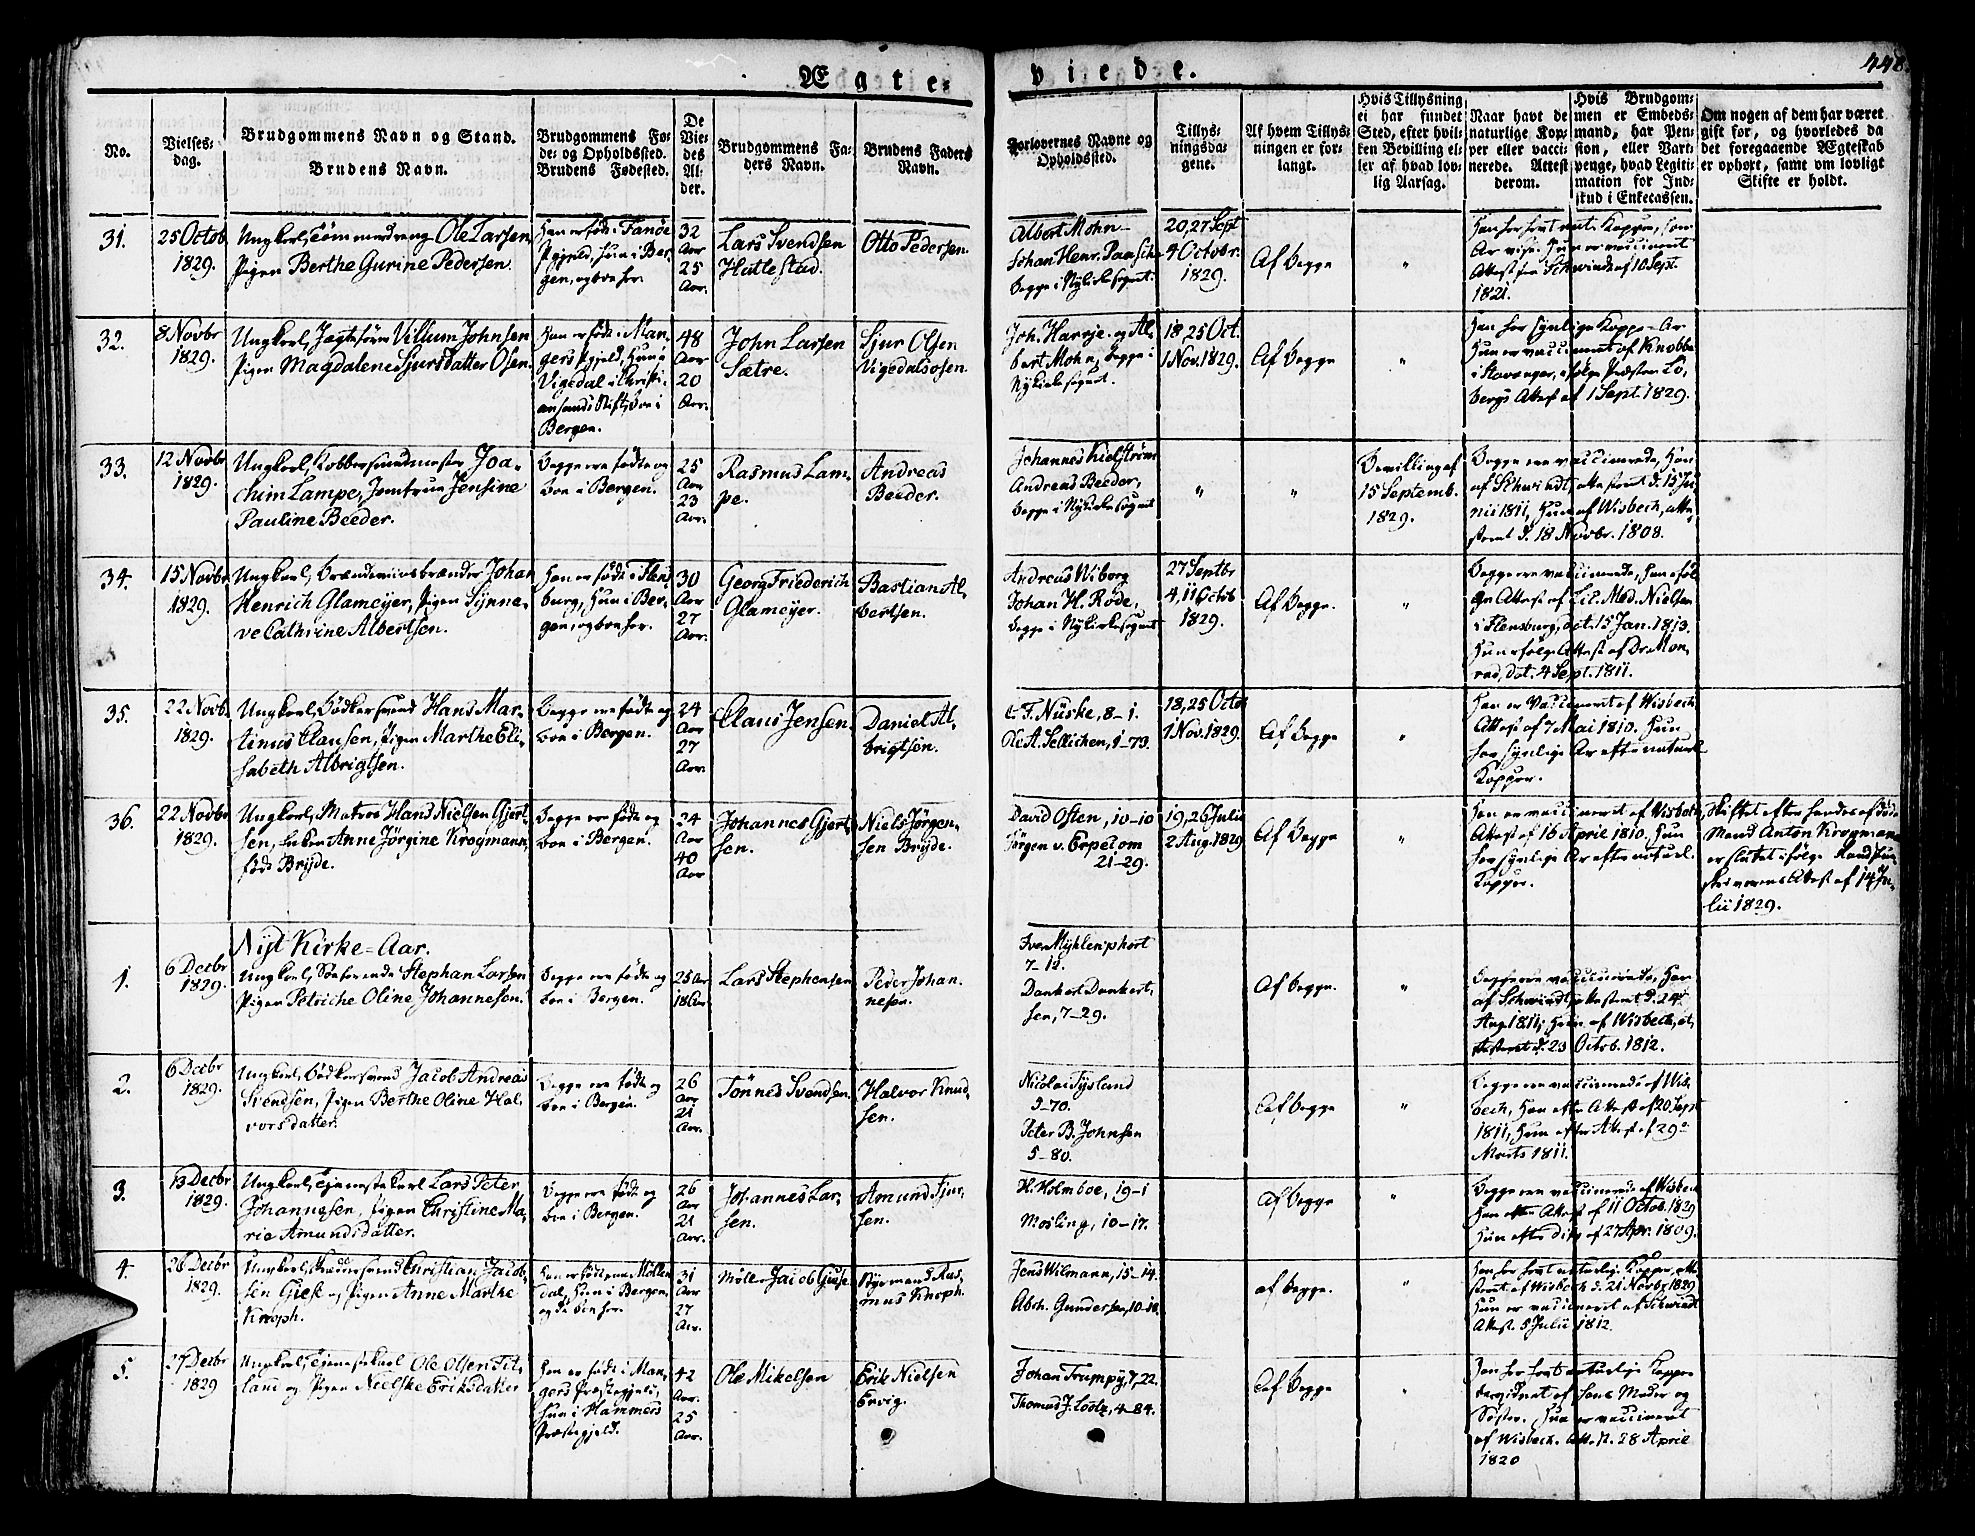 Ægte-
viede.
448.
No.
Vielses-
dag.
Brudgommens Navn og Stand.
Brudens Navn.
Brudgommens Fø-
de- og Opholdssted.
Brudens Fødested.
De
Vie-
des
Al-
der.
Brudgommens Fa-
ders Navn.
Brudens Faders
Navn.
Forlovernes Navne og
Opholdssted.
Tillys-
ningsda-
gene.
Af hvem Tillys-
ningen er for-
langt.
Hvis Tillysning
ei har fundet
Sted, efter hvil-
ken Bevilling el-
ler af hvad lov-
lig Aarsag.
Naar havt de
naturlige Kop-
per eller vacci-
nerede. Attest
derom.
Hvis Brudgom-
men er Embeds-
mand, har Pen-
sion, eller Vart-
penge, hvad Legiti-
mation for Ind-
skud i Enkecassen.
Om nogen af dem har været
gift før, og hvorledes da
det foregaaende Ægteskab
er ophørt, samt om lovligt
Skifte er holdt.
31.
25 Octob
1829.
Ungkarl, Tømmermand Ole Larsen,
Pigen Berthe Gurine Pedersen.
Han er født i Fanøe
Pgjeld, hun i Ber-
gen, og boe her.
32
Aar
25
Aar.
Lars Svendsen
Hatlestad.
Otto Pedersen.
Albert Mohn
Johan Henr. Paasche
begge i Nykirkesognet.
20, 27 Sept
4 Octobr.
1829.
Af begge
"
Han har havt nat. Kopper, som
Ar vise. Hun er vaccineret
Attest fra Schwindt af 10 Sept.
1821.
32.
8 Novbr
1829.
Ungkarl, Jægtefører Villum Johnsen
Pigen Magdalene Sjursdatter Osen.
Han er født i Man-
gers Pgjeld, hun i
Vigedal i Christi-
ansands Stift, boe i
Bergen.
48
Aar
20
Aar.
John Larsen
Sætre.
Sjur Olsen
Vigedalsosen.
Joh. Harrje og Al-
bert Mohn, begge i
Nykirkesognet.
18, 25 Oct.
1 Nov. 1829.
Af begge
"
Han har synlige Koppe-Ar
Hun er vaccineret af Knobbe
i Stavanger, ifølge Præsten Lo-
bergs Attest af 1 Sept. 1829.
33.
12 Novbr
1829.
Ungkarl, Kobbersmedmester Joa-
chim Lampe, Jomfrue Jensine
Pauline Beeder.
Begge ere fødte og
boe i Bergen.
25
Aar
23
Aar.
Rasmus Lam-
pe.
Andreas
Beeder.
Johannes Kielstrøm
Andreas Beeder,
begge i Nykirkesognet
"
"
Bevilling af
15 Septemb.
1829.
Begge ere vaccinerede, Han
af Schwindt, attesteret d. 15 Ju-
nii 1811, Hun af Wisbech, atte-
steret d. 18 Novbr. 1808.
34.
15 Novbr
1829.
Ungkarl, Brændeviinsbrænder Johan
Henrich Glameyer, Pigen Synne-
ve Cathrine Albertsen.
Han er født i Flens-
burg, Hun i Ber-
gen, og boe her.
30
Aar
27
Aar.
Georg Friederich
Glameyer.
Bastian Al-
bertsen.
Andreas Wiborg
Johan H. Rode,
begge i Nykirkesognet
27 Septbr
4, 11 Octob
1829.
Af begge.
"
Begge ere vaccinerede, Han iføl-
ge Attest af Lic. Med. Nielsen
i Flensburg, dat. 15 Jan. 1813.
Hun ifølge Attest af Dr. Mon-
rad, dat. 4 Sept. 1811.
35.
22 Novb.
1829.
Ungkarl, Bødkersvend Hans Mar-
tinus Clausen, Pigen Marthe Eli-
sabeth Albrigtsen.
Begge ere fødte og
boe i Bergen.
24
Aar
27
Aar.
Claus Jensen.
Daniel Al-
brigtsen.
C. F. Nuske, 8-1.
Ole A. Sellichen, 1-73.
18, 25 Octo
1 Nov. 1829.
Af begge
"
Han er vaccineret af Wisbech
Attest af 7 Mai 1810. Hun
har synlige Ar efter naturl.
Kopper.
36.
22 Novbr
1829.
Ungkarl, Matros Hans Nielsen Gjert-
sen, Enken Anne Jørgine Krogmann,
født Bryde.
Begge ere fødte og
boe i Bergen.
24
Aar
40
Aar
Johannes Gjert-
sen.
Niels Jørgen-
sen Bryde.
David Osten, 10-10
Jørgen v. Erpecom
21-29.
19, 26 Julii
2 Aug. 1829
Af begge
"
Han er vaccineret af Wisbech
Attest af 16 April 1810. Hun
har synlige Ar efter naturl.
Kopper.
Skiftet efter hendes afdøde
Mand Anton Krogmann
er sluttet ifølge
Attest af 14 Ju-
lii 1829.
Nyt Kirke-Aar.
1.
6 Decbr
1829.
Ungkarl, Søefarende Stephan Larsen
Pigen Petriche Oline Johannesen.
Begge ere fødte og
boe i Bergen.
25 Aar
18 Aar
Lars Stephensen
Peder Johan-
nesen.
Iver Myhlenphort
7-12.
Dankert Dankert-
sen, 7-29.
Af begge.
"
Begge ere vaccinerede, Han
af Schwindt, attesteret d. 24
Aug. 1811, Hun af Wisbech, at-
testeret d. 23 Octob. 1812.
2.
6 Decbr
1829.
Ungkarl, Bødkersvend Jacob Andreas
Svendsen, Pigen Berthe Oline Hal-
vorsdatter.
Begge ere fødte og
boe i Bergen.
26
Aar
21
Aar.
Tønnes Svendsen.
Halvor Knud-
sen.
Nicolai Tysland
3-70.
Peter B. Johnsen
5-80.
Af begge
"
Begge ere vaccinerede af Wis-
bech, Han efter Attest af 20 Sept
1811, Hun efter Attest af 29
Marts 1811.
3.
13 Decbr
1829.
Ungkarl, Tjenestekarl Lars Peter
Johannesen, Pigen Christine Ma-
rie Amundsdatter.
Begge ere fødte og
boe i Bergen.
26
Aar
21
Aar.
Johannes Lar-
sen.
Amund Sjur-
sen.
H. Holmboe, 19-1
Mosling, 10-17.
Af begge
"
Begge ere vaccinerede af Wisbech
Han efter Attest af 11 Octob. 1829
Hun efter dito af 27 Apr. 1809.
4.
26 Decbr
1829.
Ungkarl, Skræddersvend Christian Jacob-
sen Giese og Pigen Anne Marthe
Knoph.
Han er født i Møllen-
dal, Hun i Bergen,
og de boe her.
31
Aar
27
Aar.
Møller Jacob Giese
Styrmand Ras-
mus Knoph.
Jens Wilmann, 15-14.
Abrh. Gundersen, 10-10
af begge.
"
Han har havt naturlige Kopper, atte-
steret af Wisbech d. 21 Novbr 1829
Hun er vaccineret af Schwindt
Attest. 5 Julii 1812.
5.
27 Decbr
1829
Ungkarl, Tjenestekarl Ole Olsen Tit-
land og Pigen Nielske Eriksdatter
Han er født i Man-
gers Præstegjeld,
hun i Hammers
Præstegjeld.
42
Aar.
25
Aar.
Ole Mikelsen
Erik Nielsen
Ervig.
Johan Trumpy, 7-22.
Thomas J. Lootz, 4-84.
Af begge
"
Han har havt naturlige Kopper
bevidnet af hans Moder og
Søster. Hun er vaccineret
af Wisbech. Att. 28 April
1820